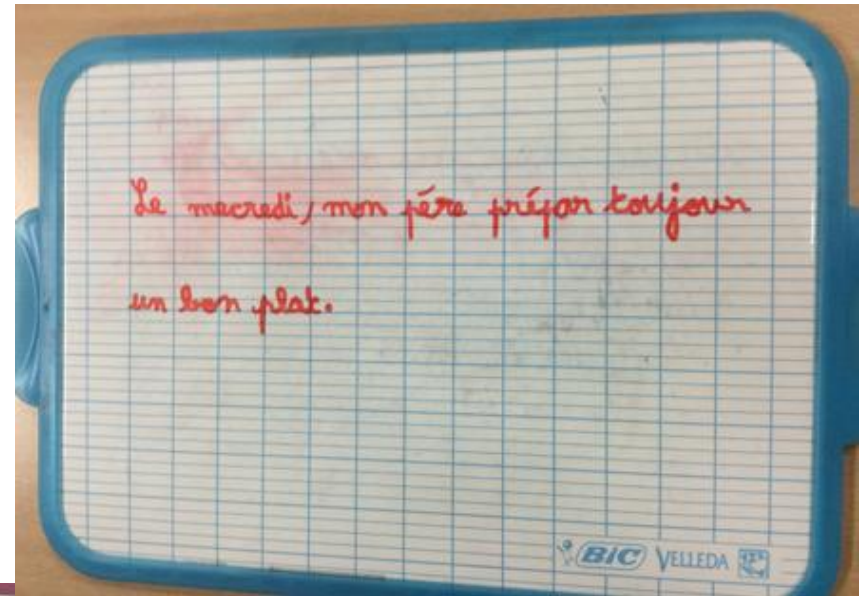 Le macredi, mon pére prépar toujour
un bon plat.
BIC VELLEDA